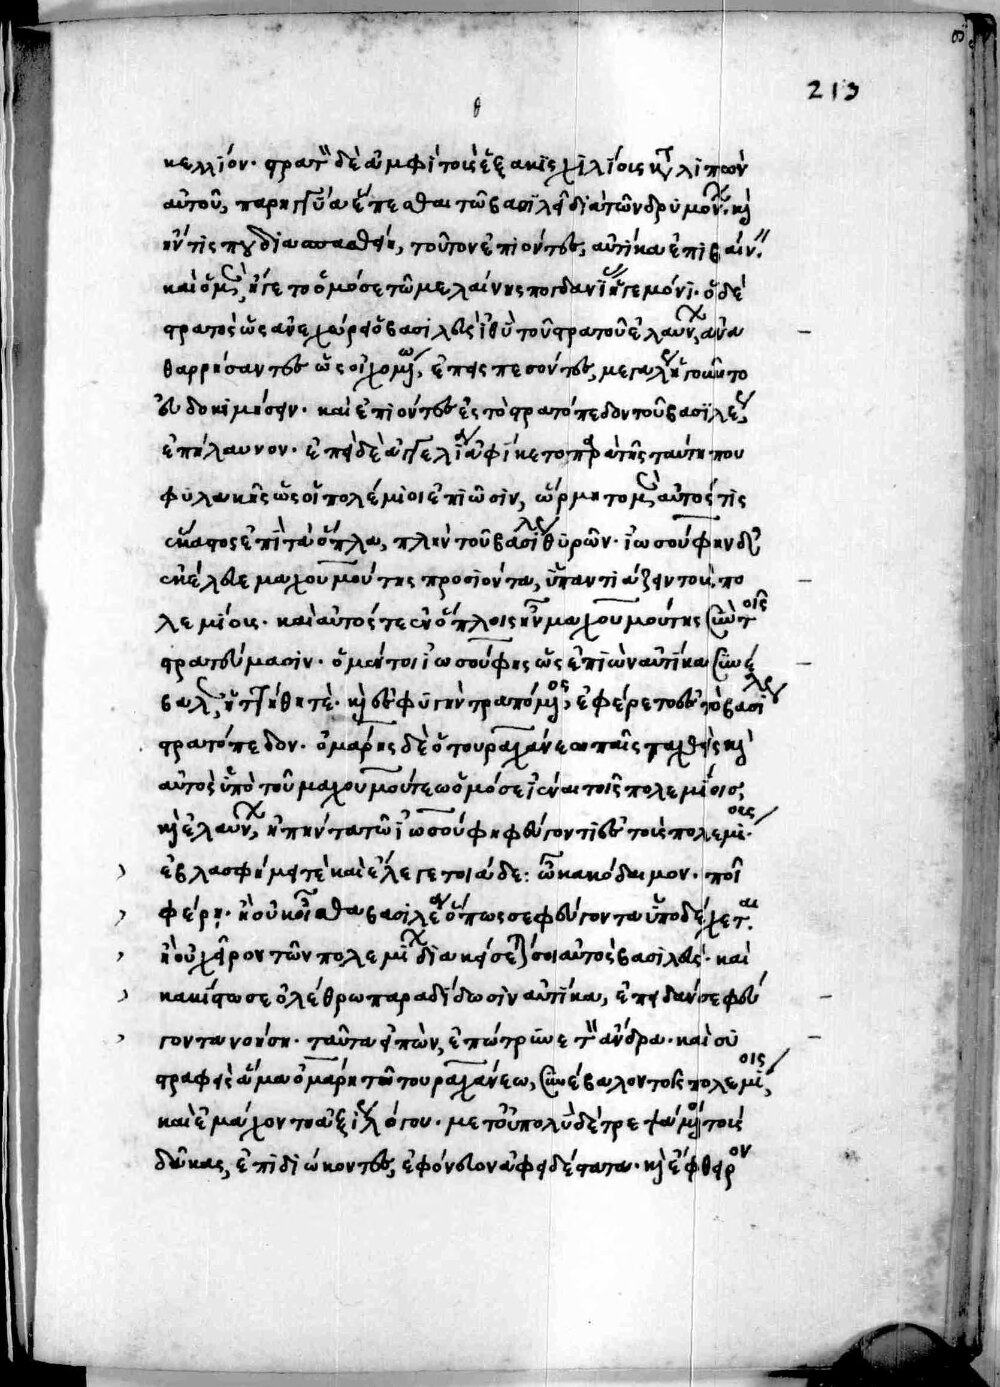 θ
213
κελλίον. στρατὸν δὲ ἀμφὶ τοὺς ἑξακισχιλίους καταλιπὼν
αὐτοῦ, παρηγγύα ἕπεσθαι τῶ βασιλεῖ διὰ τῶν δρυμόνων. καὶ
ἤν τίς που διασπασθείη, τοῦτον ἐπιόντας, αὐτίκα ἐπιβαίνειν.
καὶ οὗτος μὲν ᾔει τὸ ὁμόσε τῶ μελαίνης πογδανίας ἡγεμόνι. ὁ δὲ
στρατὸς ὡς ἀνεχώρει ὁ βασιλεὺς ἰθὺ τοῦ στρατοῦ ἐλαύνων, ἀνα
θαρρήσαντες ὡς οἰχομένω, ἐπεισπεσόντες, μεγάλως ᾤοντο
εὐδοκιμήσειν. καὶ ἐπιόντες ἐς τὸ στρατόπεδον τοῦ βασιλέως,
ἐπήλαυνον. ἐπεὶ δὲ ἀγγελία ἀφίκετο παρὰ τῆς ταύτη που
φυλακῆς ὡς οἱ πολέμιοι ἐπιῶσιν, ὥρμητο μὲν αὐτός τις
ἕκαστος ἐπὶ τὰ ὅπλα, πλὴν τοῦ βασιλέως θυρῶν. ἰωσούφην δὲ
ἐκέλευε μαχουμούτης προσιόντα, ὑπαντιάζειν τοῖς πο
λεμίοις. καὶ αὐτός τε ἐν ὅπλοις ἦν μαχουμούτης σὺν τοῖς
στρατεύμασιν. ὁ μέντοι ἰωσούφης ὡς ἐπιὼν αὐτίκα συνέ
βαλεν, ἡττήθη τὲ. καὶ ἐς φυγὴν τραπόμενος, ἐφέρετο ἐς τὸ βασιλέως
στρατόπεδον. ὁμάρης δὲ ὁ τουραχάνεω παῖς ταχθεὶς καὶ
αὐτὸς ὑπὸ τοῦ μαχουμούτεω ὁμόσε ἰέναι τοῖς πολεμίοις,
καὶ ἐλαύνων, ἠπήντα τῶ ἰωσούφη φεύγοντι ἐς τοὺς πολεμίους.
ἐβλασφήμει τὲ καὶ ἔλεγε τοιάδε: ὦ κακόδαιμον. ποῖ
φέρη. ἢ οὐκ οἶσθα βασιλέα ὅπως σε φεύγοντα ὑποδέχεται.
ἢ οὐ χεῖρον τῶν πολεμίων διαθήσεταί σοι αὐτὸς βασιλεύς. καὶ
κακίστω σε ὀλέθρω παραδίδωσιν αὐτίκα, ἐπειδάν σε φεύ
γοντα νοήση. ταῦτα εἰπὼν, ἐπώτρυνε τὸν ἄνδρα. καὶ συ
στραφεὶς ἅμα ὁμάρη τῶ τουραχάνεω, συνέβαλον τοῖς πολεμίοις,
καὶ ἐμάχοντο ἀξίως λόγου. μετ' οὐ πολὺ δὲ τρεψάμενοι τοὺς
δᾶκας, ἐπιδιώκοντες, ἐφόνευον ἀφειδέστατα. καὶ ἔφθειρον